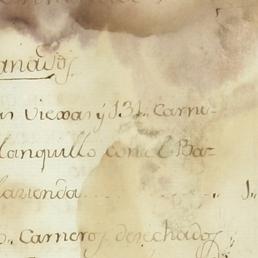 anados.
as viexas y 131. carne-
lanquillo con el Ba-
hazienda ... 1.
o. carneros desechados